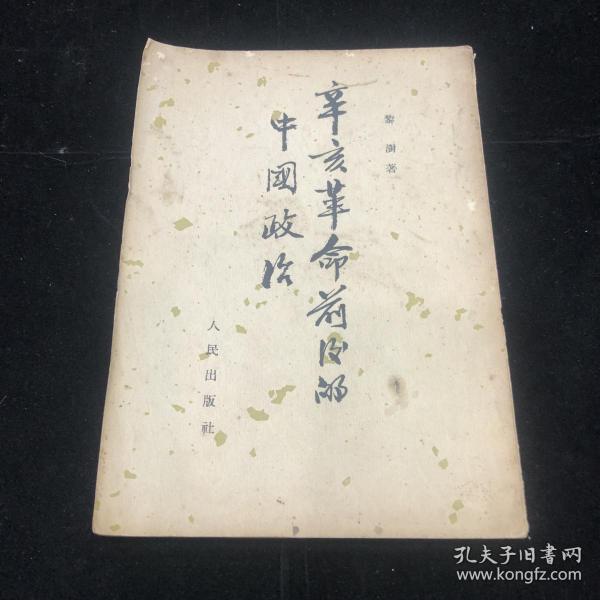 黎澍著
辛亥革命前后的
中國政治
人民出版社
孔夫子旧書网
www.kongfz.com